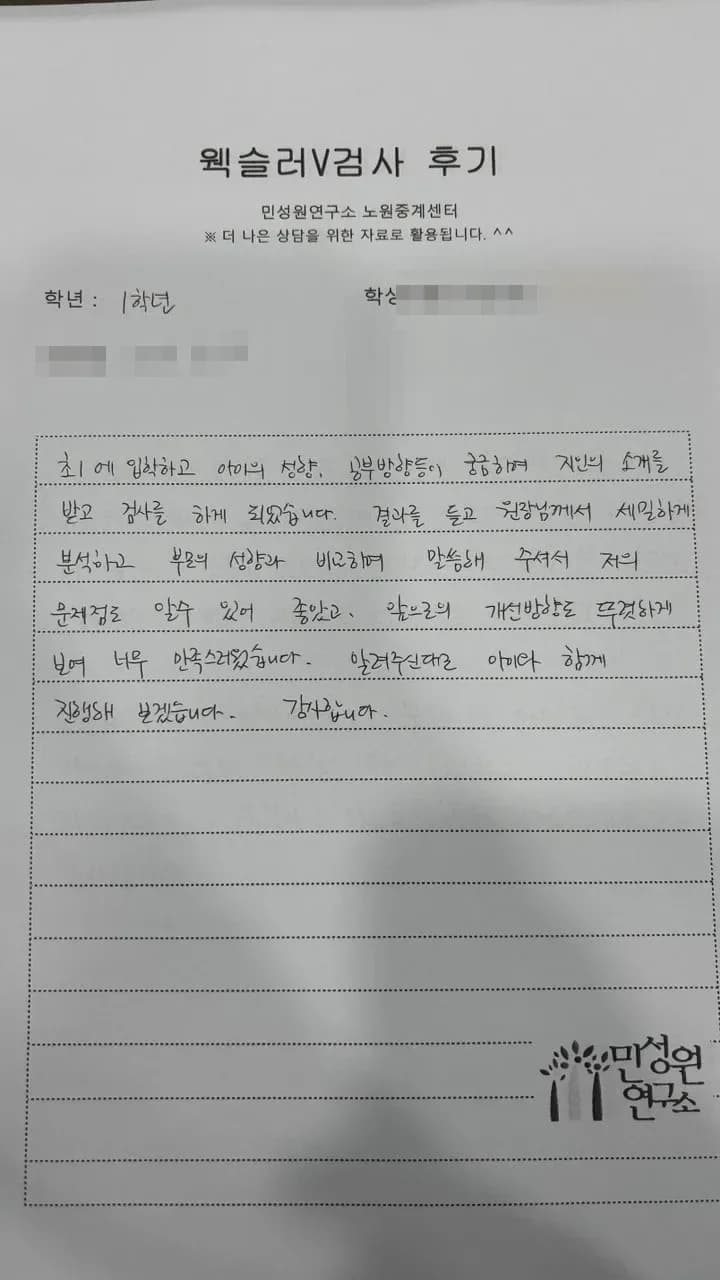 웩슬러V검사 후기
민성원연구소 노원중계센터
※ 더 나은 상담을 위한 자료로 활용됩니다. ^^
학년 : 1학년 학생
초1에 입학하고 아이의 성향, 공부방향등이 궁금하여 지인의 소개를
받고 검사를 하게 되었습니다. 결과를 듣고 원장님께서 세밀하게
분석하고 부모의 성향과 비교하며 말씀해 주셔서 저의
문제점도 알수 있어 좋았고, 앞으로의 개선방향도 뚜렷하게
보여 너무 만족스러웠습니다. 알려주신대로 아이와 함께
진행해 보겠습니다. 감사합니다.
민성원
연구소